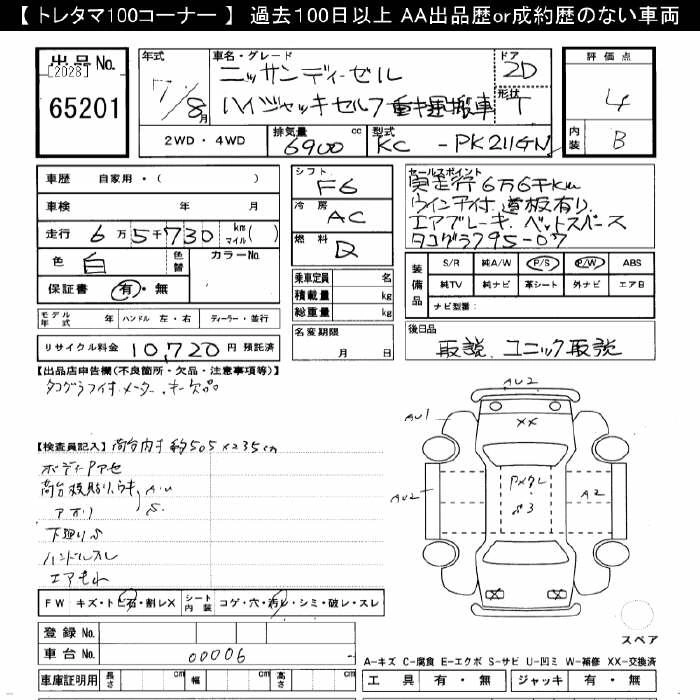 【 トレタマ100コーナー 】 過去100日以上 AA出品歴or成約歴のない車両
出品No.
[2028]
65201
年式
7/8月
車名・グレード
ニッサンディーゼル
ハイジャッキセルフ重キ運搬車
ドア
2D
形状
T
評価点
4
内装
B
2WD・4WD
排気量
6900 cc
型式
KC -PK211GN
車歴 自家用・( )
車検 年 月
走行 6万5千730 km マイル( )
色 白 色替 カラーNo.
保証書 有・無
シフト
F6
冷房
AC
燃料
D
セールスポイント
実走行6万6千km
ウインチ付 道板有り
エアブレーキ ベットスペース
タコグラフ95-07
装備品
S/R 純A/W P/S P/W ABS
純TV 純ナビ 革シート 外ナビ エアB
ナビ型番:
乗車定員 名
積載量 kg
総重量 kg
名変期限
月 日
モデル年式 年 ハンドル 左・右 ディーラー・並行
リサイクル料金 10,720 円 預託済
後日品
取説、ユニック取説
【出品店申告欄(不良箇所・欠品・注意事項等)】
タコグラフ付メーター、キー欠品
【検査員記入】荷台内寸 約505×235cm
下廻りS
ハンドルスレ
エアもれ
AU2
AU1
XX
AU2
A2
FW キズ・トビ石・割レX シート内装 コゲ・穴・汚レ・シミ・破レ・スレ
登録No.
車台No. 00006
スペア
A-キズ C-腐食 E-エクボ S-サビ U-凹ミ W-補修 XX-交換済
車庫証明用 長さ cm 幅 cm 高さ cm
工具 有・無 ジャッキ 有・無